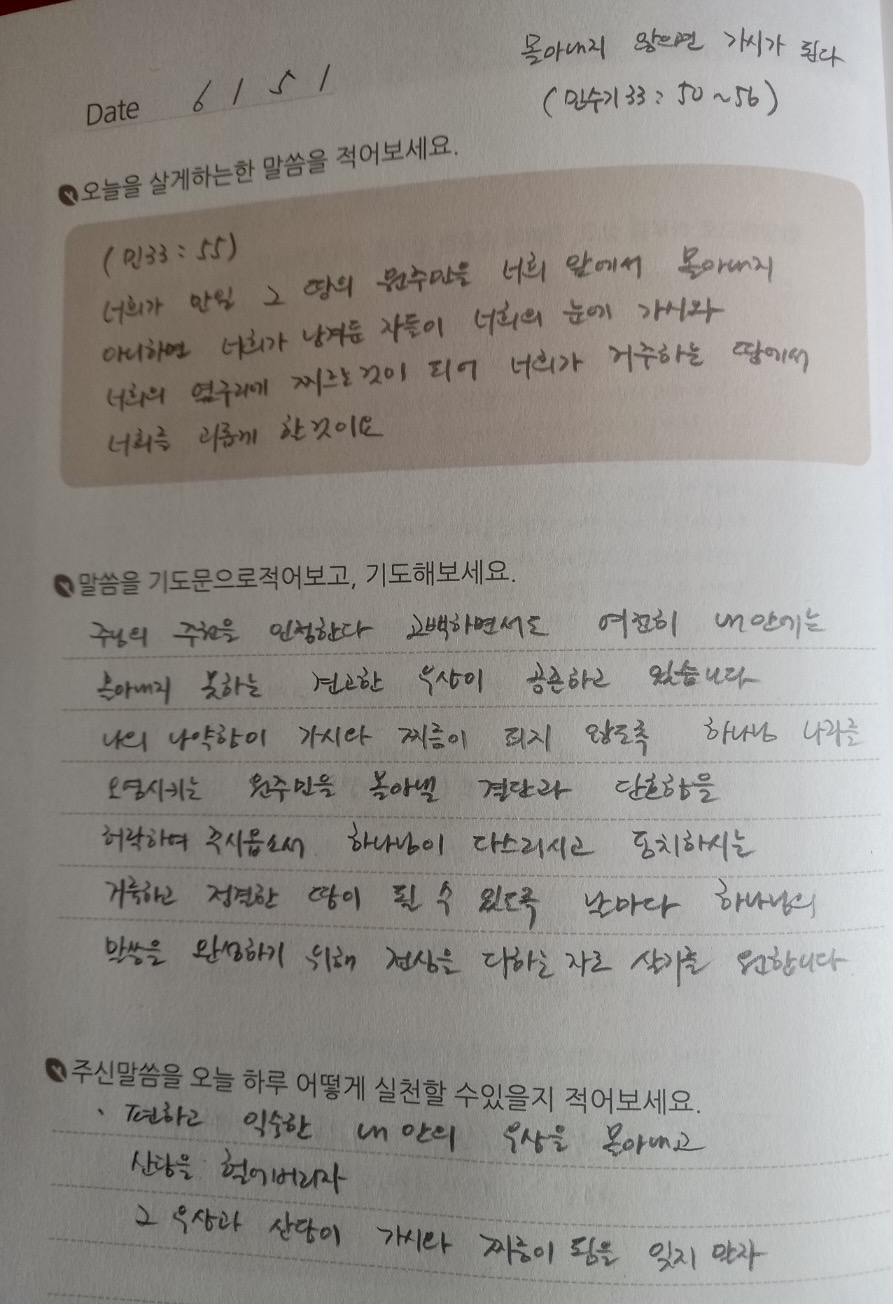 몰아내지 않으면 가시가 된다
(민수기 33 : 50 ~ 56)
Date 6 / 5 /
오늘을 살게하는한 말씀을 적어보세요.
(민33 : 55)
너희가 만일 그 땅의 원주민을 너희 앞에서 몰아내지
아니하면 너희가 남겨둔 자들이 너희의 눈에 가시와
너희의 옆구리에 찌르는 것이 되어 너희가 거주하는 땅에서
너희를 괴롭게 할 것이요
말씀을 기도문으로적어보고, 기도해보세요.
주님의 주권을 인정한다 고백하면서도 여전히 내 안에는
몰아내지 못하는 견고한 우상이 공존하고 있습니다
나의 나약함이 가시와 찌름이 되지 않도록 하나님 나라를
오염시키는 원주민을 몰아낼 결단과 단호함을
허락하여 주시옵소서 하나님이 다스리시고 통치하시는
거룩하고 정결한 땅이 될 수 있도록 날마다 하나님의
말씀을 완성하기 위해 전심을 다하는 자로 살기를 원합니다
주신말씀을 오늘 하루 어떻게 실천할 수있을지 적어보세요.
· 편하고 익숙한 내 안의 우상을 몰아내고
산당을 헐어버리자
그 우상과 산당이 가시와 찌름이 됨을 잊지 말자